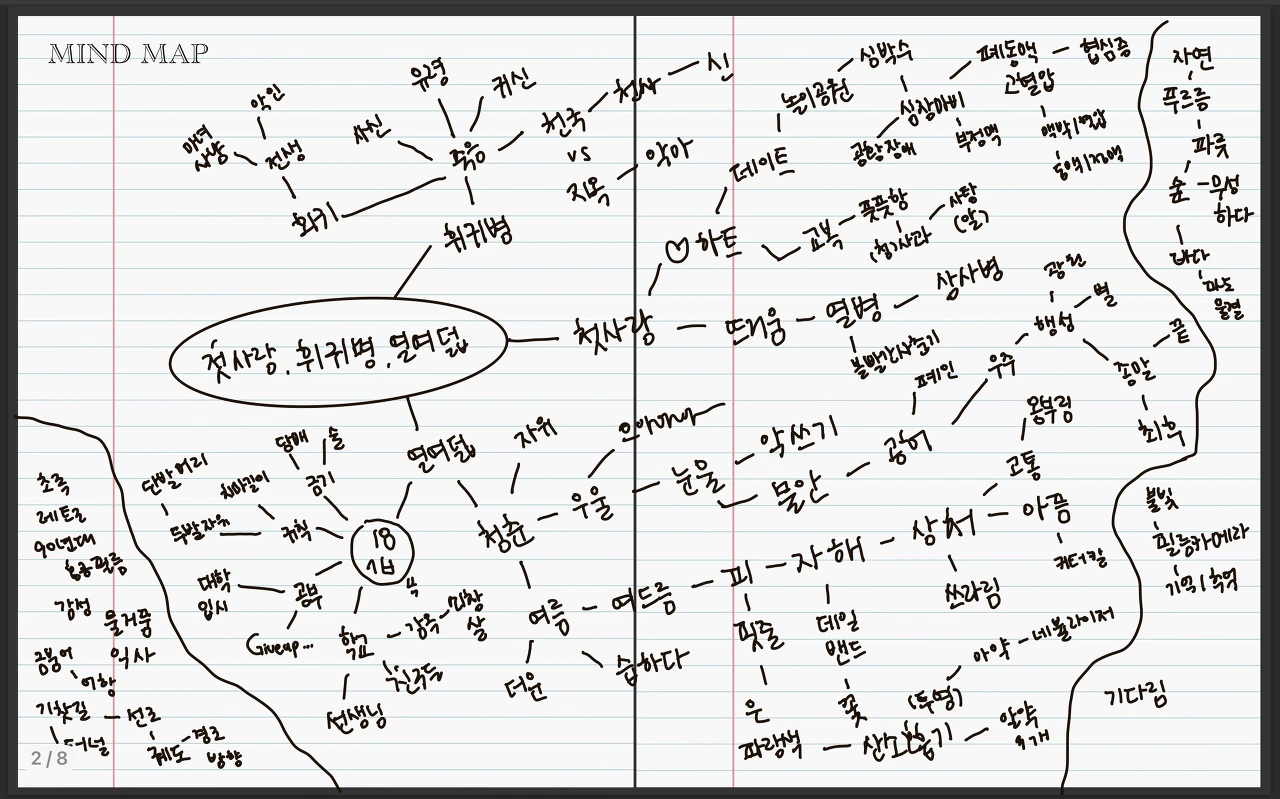 MIND MAP
첫사랑, 휘귀병, 열여덟
휘귀병
죽음
유령
귀신
사신
천국
천사
신
vs
지옥
악마
화귀
전생
악인
마녀
사냥
첫사랑
♡ 하트
데이트
놀이공원
심박수
심장마비
공황장애
부정맥
폐동맥
고혈압
협심증
맥박/혈압
동맥/정맥
교복
풋풋함
(청)사과
사탕
(알)
뜨거움
열병
상사병
볼빨간사춘기
열여덟
18
청춘
자위
우울
으아아아아
눈물
악쓰기
불안
공허
폐인
우주
행성
광원
별
종말
끝
최후
규칙
금기
담배
술
치마길이
두발자유
단발머리
공부
대학
입시
Giveup...
학교
강목
친구들
선생님
여름
더운
습하다
여드름
피
핏줄
은
파랑색
산소호흡기
(투명)
마약
네뷸라이저
알약
자해
데일
밴드
꽃
상처
쓰라림
고통
몸부림
아픔
커터칼
자연
푸르름
파릇
숲
무성
하다
바다
파도
물결
불빛
필름카메라
기억/추억
기다림
초록
레트로
90년대
홍콩필름
감성
물거품
익사
금붕어
어항
기찻길
선로
터널
궤도
경로
방향
2/8